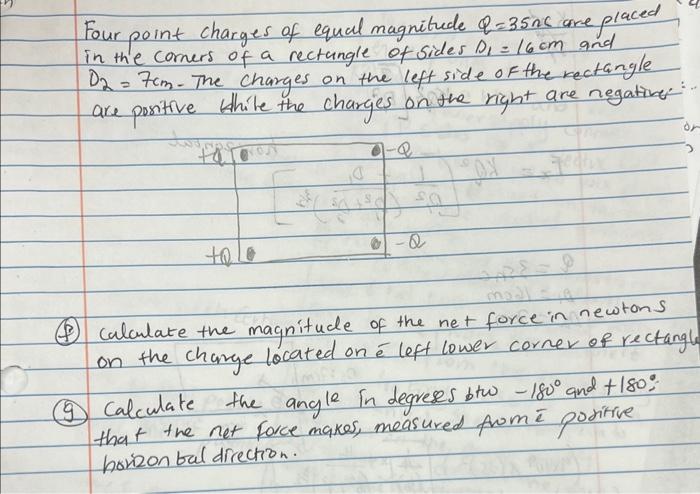 Four point charges of equal magnitude Q = 35nc are placed
in the corners of a rectangle of sides D₁ = 16cm and
D₂ = 7cm. The charges on the left side of the rectangle
are positive while the charges on the right are negative.
+Q -Q
+Q -Q
calculate the magnitude of the net force in newtons
on the charge located on ē left lower corner of rectangle
(g) Calculate the angle in degrees btw -180° and +180°
that the net force makes, measured from ē positive
horizontal direction.
or